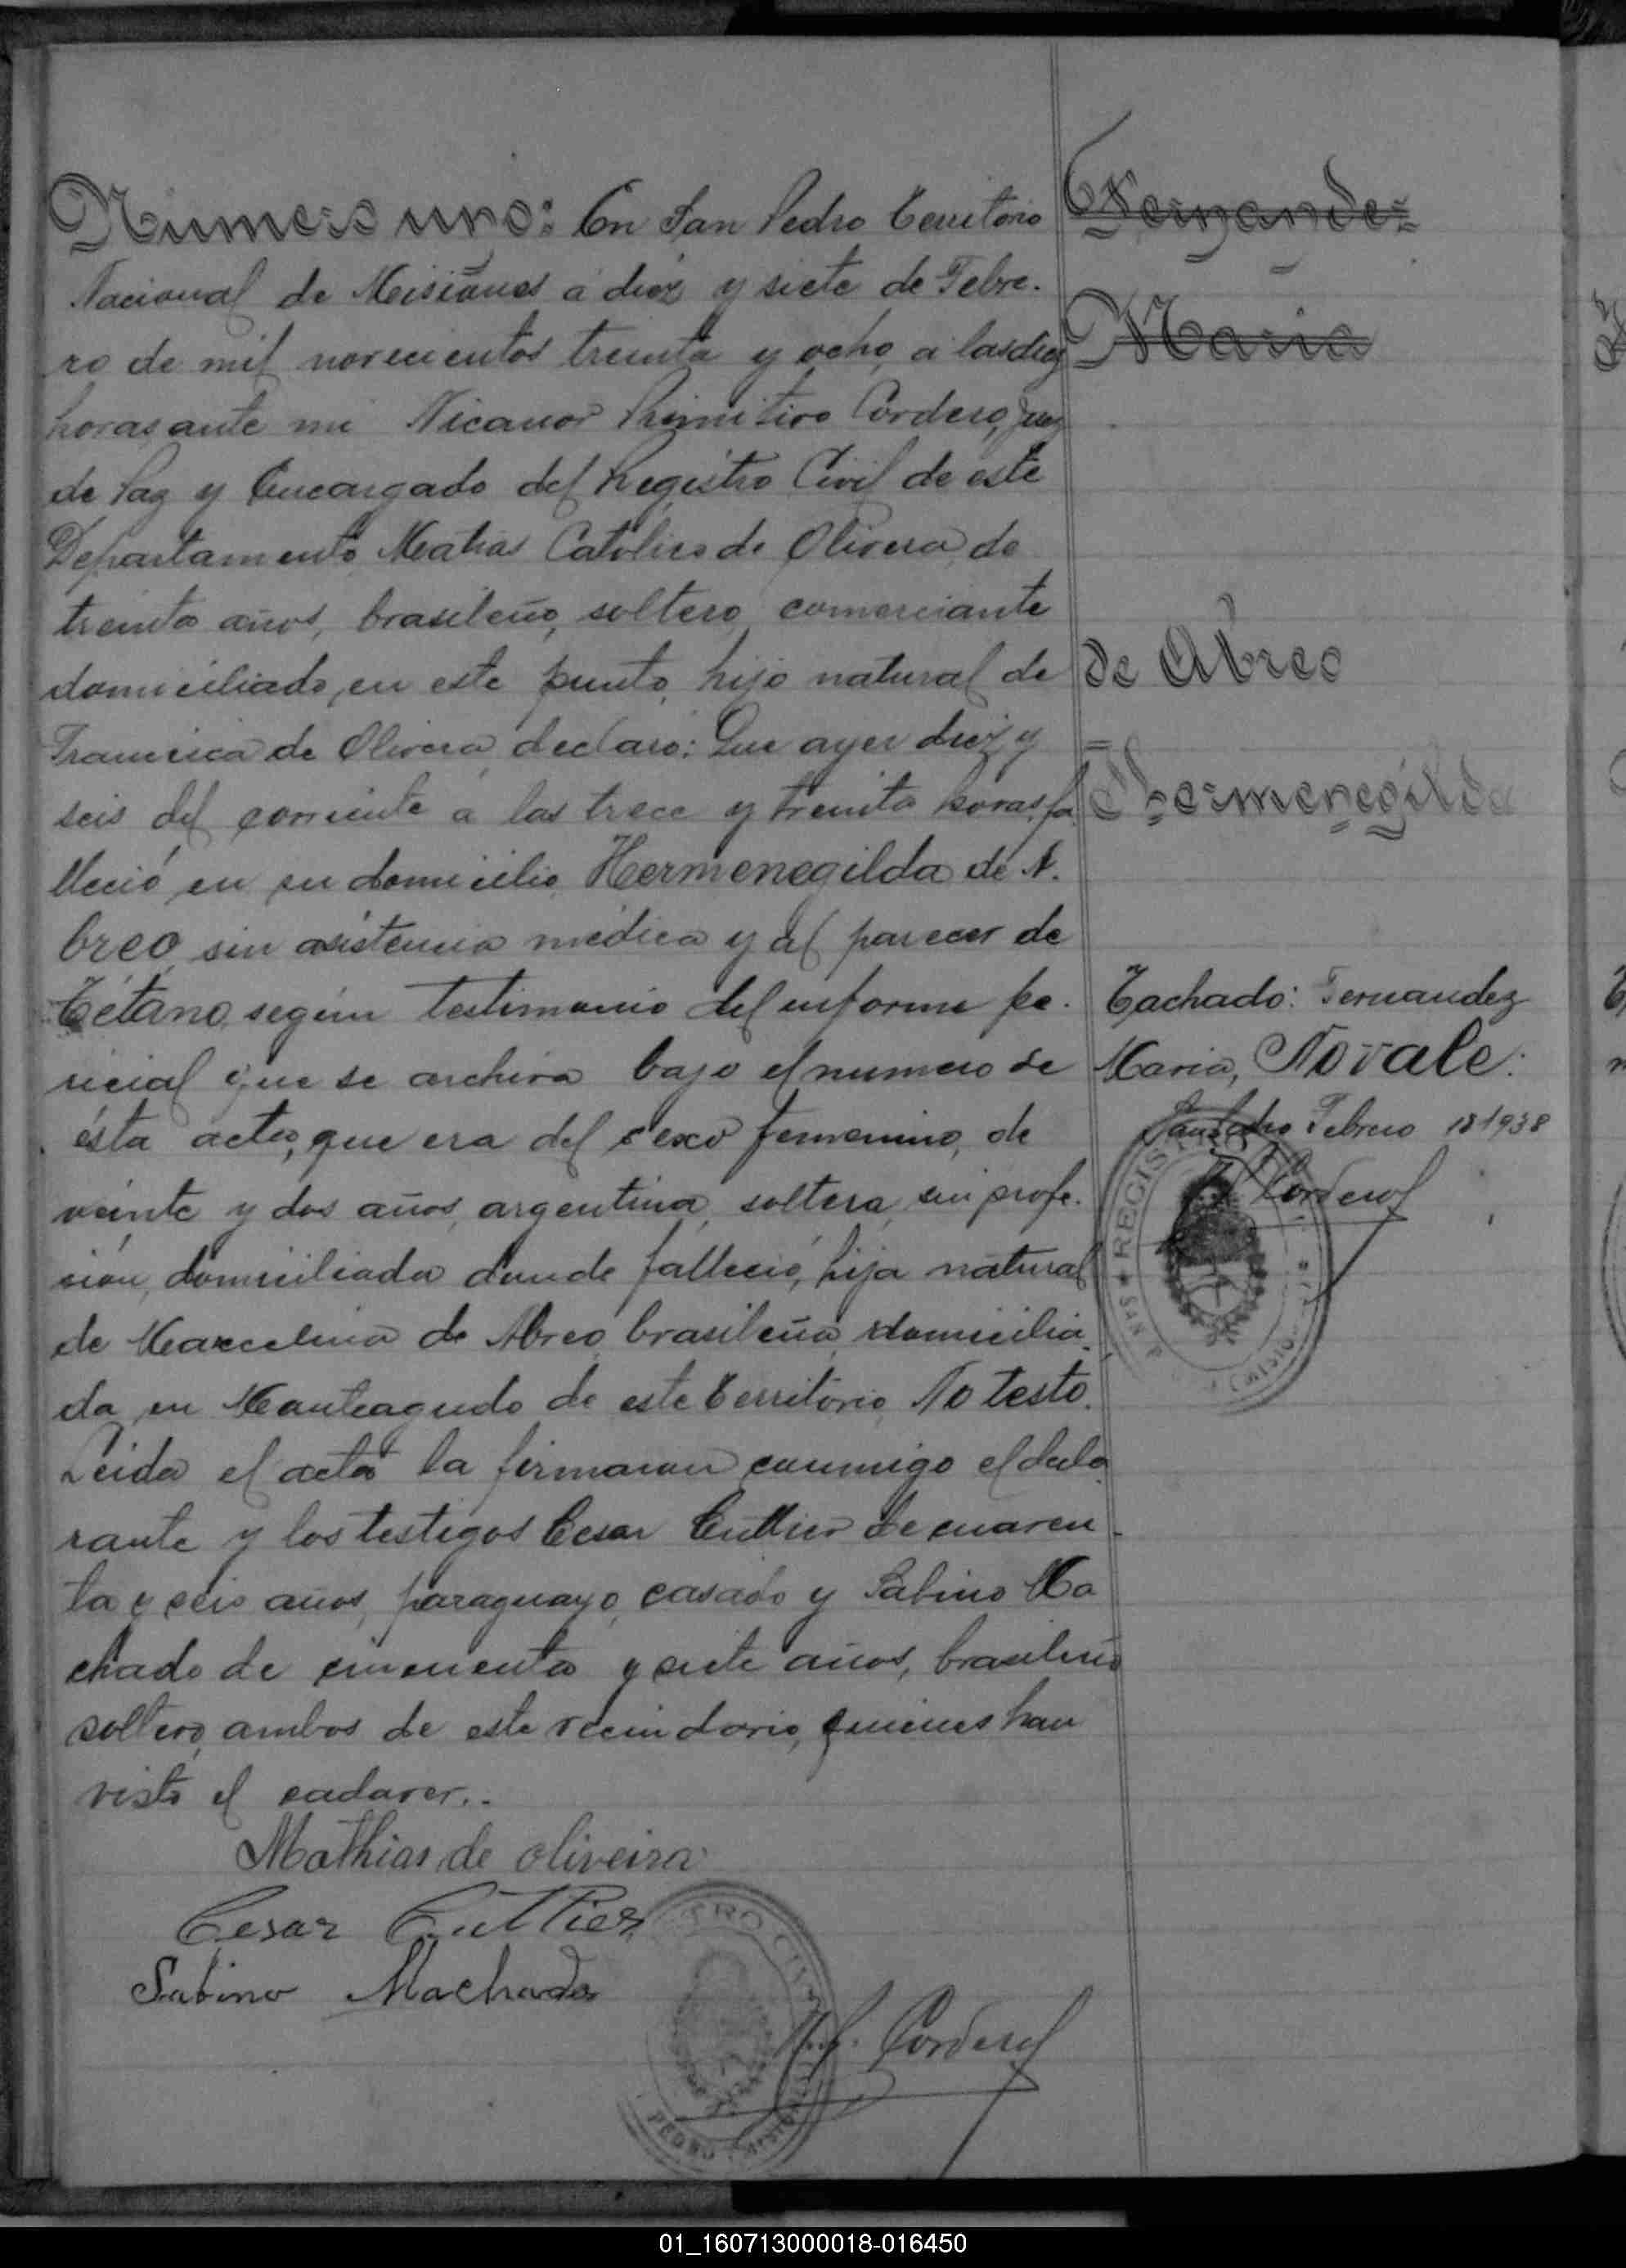 Numero uno: En San Pedro Territorio
Nacional de Misiones á diez y siete de Febre-
ro de mil novecientos treinta y ocho, a las diez
horas ante mi Nicanor Primitivo Cordero, Juez
de Paz y Encargado del Registro Civil de este
Departamento, Matias Catolico de Olivera, de
treinta años, brasileño, soltero, comerciante
domiciliado, en este punto, hijo natural de
Francisca de Olivera, declaró: Que ayer diez y
seis del corriente a las trece y treinta horas, fa-
lleció en su domicilio, Hermenegilda de A-
breo, sin asistencia médica y al parecer de
Tétano, según testimonio del informe pe-
ricial que se archiva bajo el numero de
ésta acta, que era del sexo femenino, de
veinte y dos años, argentina, soltera, sin profe-
sión, domiciliada donde falleció, hija natural
de Marcelina de Abreo, brasileña, domicilia-
da en Manteagudo de este Territorio. No testó.
Leida el acta la firmaron conmigo el decla-
rante y los testigos Cesar Cuttier de cuaren-
ta y seis años, paraguayo, casado y Sabino Ma
chado de cincuenta y siete años, brasileño
soltero, ambos de este vecindario, quienes han
visto el cadaver..
Mathias de oliveira
Cesar Cuttier
Sabino Machado
N.P. Cordero
TRO CIVIL
PEDRO MISIONES
Fernandez
Maria
de Abreo
Hermenegilda
Tachado: Fernandez
Maria, No vale.
San Pedro Febrero 18 1938
Cordero
REGIS
MISIO
01_160713000018-016450